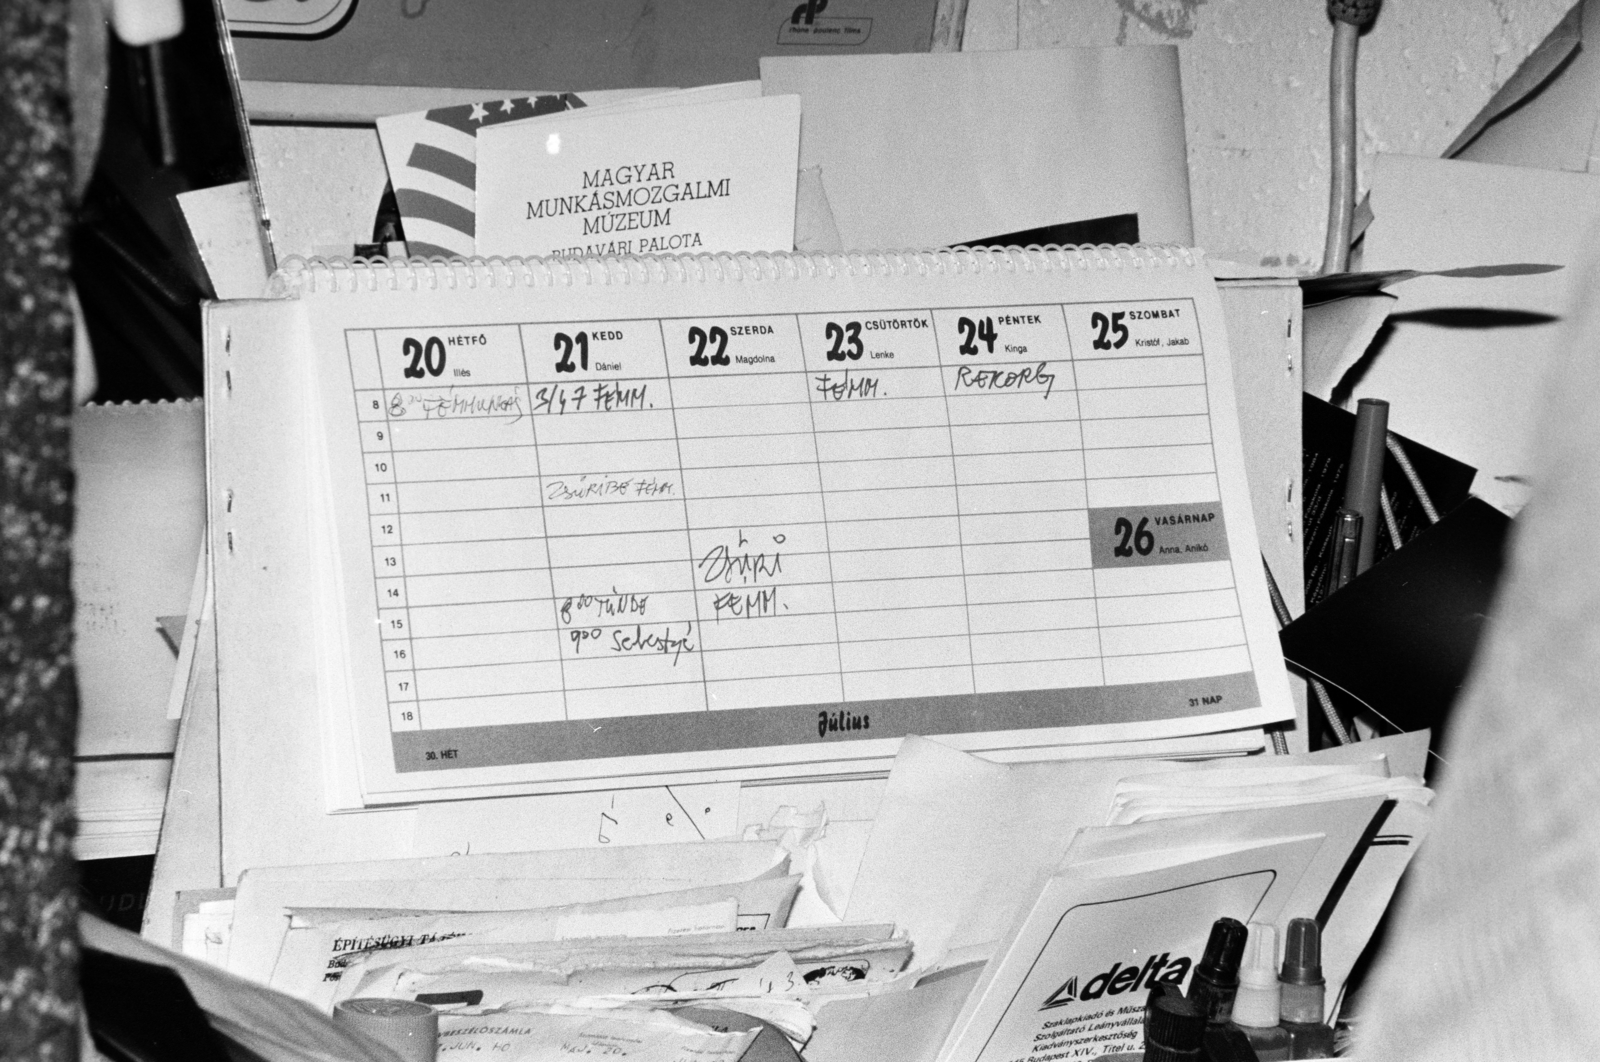 rhône-poulenc films
MAGYAR
MUNKÁSMOZGALMI
MÚZEUM
BUDAVÁRI PALOTA
20 HÉTFŐ
Illés
21 KEDD
Dániel
22 SZERDA
Magdolna
23 CSÜTÖRTÖK
Lenke
24 PÉNTEK
Kinga
25 SZOMBAT
Kristóf, Jakab
8
8⁰⁰ FÉMMUNKÁS
3/47 FÉMM.
FÉMM.
REKORG
9
10
11
ZSŰRIBE FÉMM.
12
26 VASÁRNAP
Anna, Anikó
13
ZSŰRI
14
FÉMM.
8⁰⁰ TÜNDE
15
9⁰⁰ Sebestyé
16
17
18
Július
31 NAP
30. HÉT
ÉPÍTÉSÜGYI
delta
Szaklapkiadó és Műsza
Szolgáltató Leányvállala
Kiadványszerkesztőség
Budapest XIV., Titel u. 2
BESZÉLŐSZÁMLA
JUN. HO
MÁJ. 20.